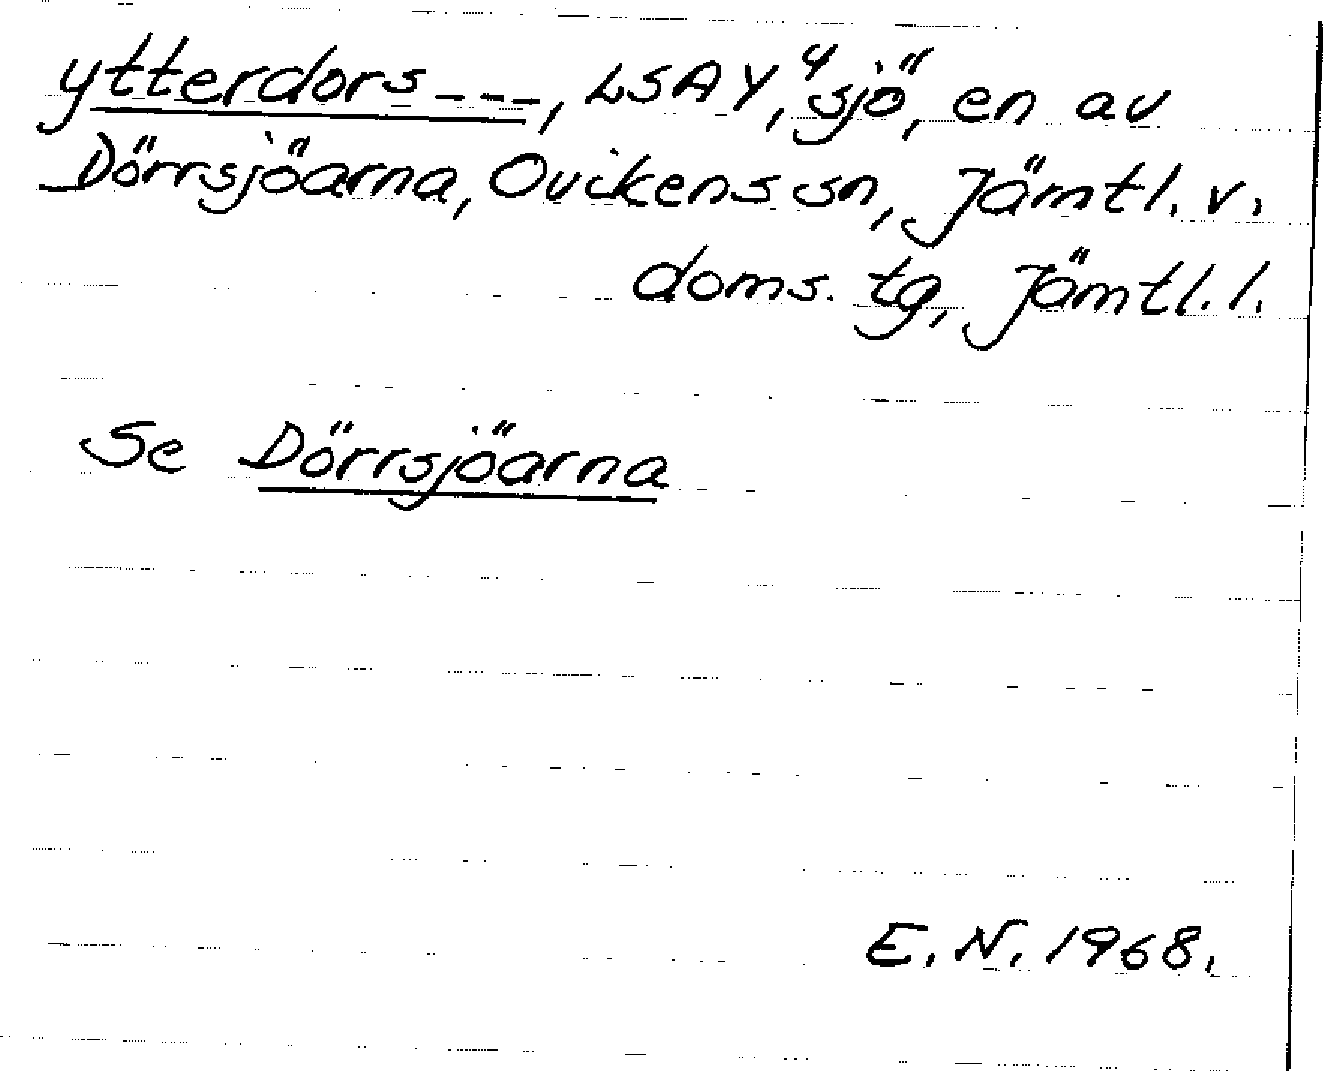 ytterdors---, LSAY, y sjö, en av
Dörrsjöarna, Ovikens sn, Jämtl. v.
doms. tg, Jämtl. l.
Se Dörrsjöarna
E. N. 1968.